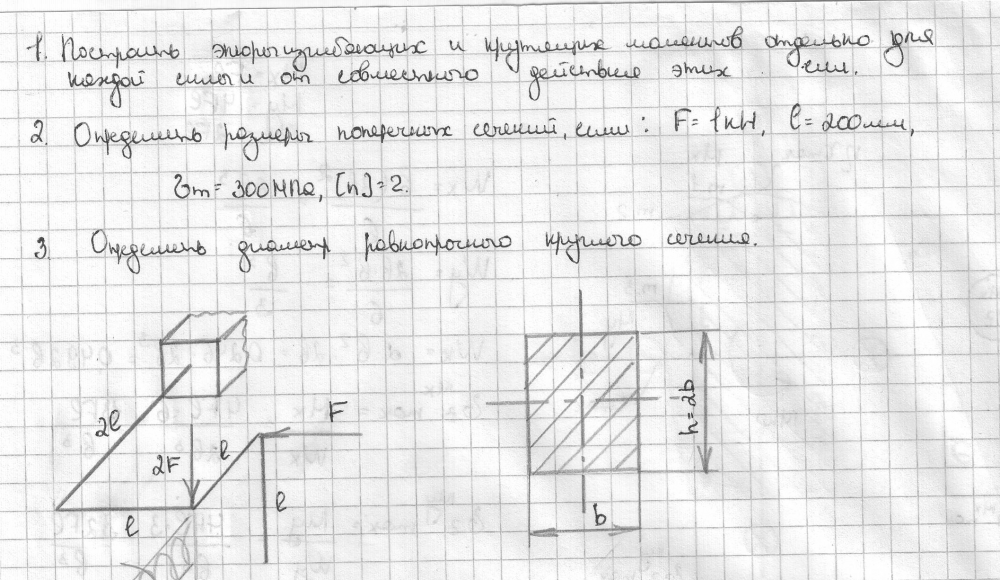 1. Построить эпюры изгибающих и крутящих моментов отдельно для
каждой силы и от совместного действие этих сил.
2. Определить размеры поперечных сечений, если: F=1кН, l=200мм,
σт=300МПа, [n]=2.
3 Определить диаметр равнопрочного круглого сечения.
2l
2F
l
F
l
l
h=2b
b